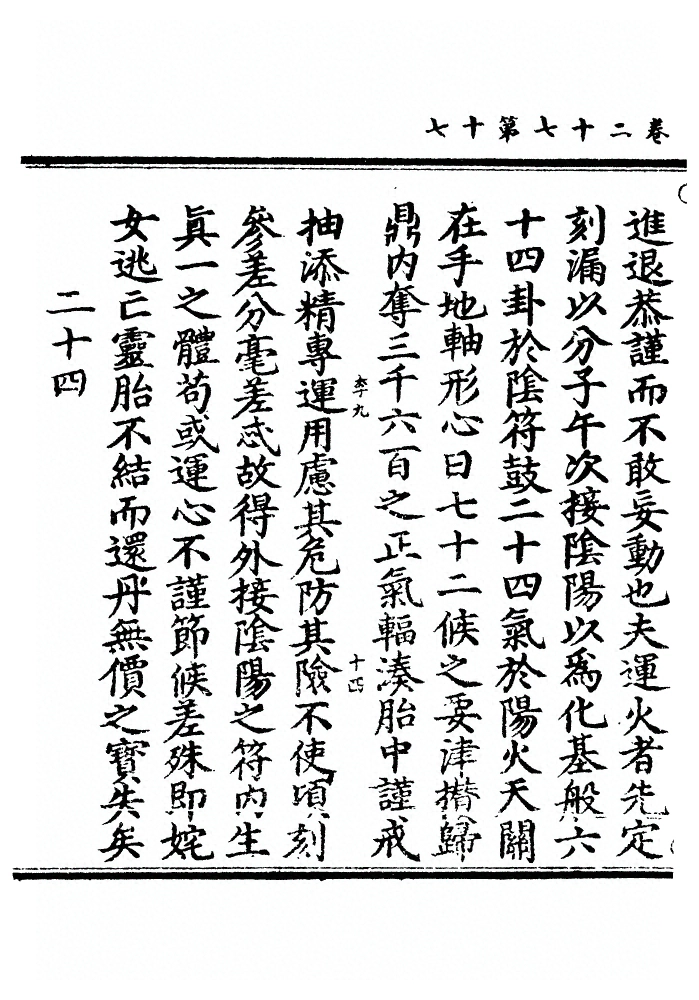 卷二十七第十七
進退恭謹而不敢妄動也夫運火者先定
刻漏以分子午次接陰陽以爲化基般六
十四卦於陰符鼓二十四氣於陽火天關
在手地軸形心日七十二候之要津攅歸
鼎内奪三千六百之正氣輻湊胎中謹戒
李九
十四
抽添精專運用慮其危防其險不使頃刻
參差分毫差忒故得外接陰陽之符内生
眞一之體苟或運心不謹節候差殊即姹
女逃亡靈胎不結而還丹無價之寶失矣
二十四